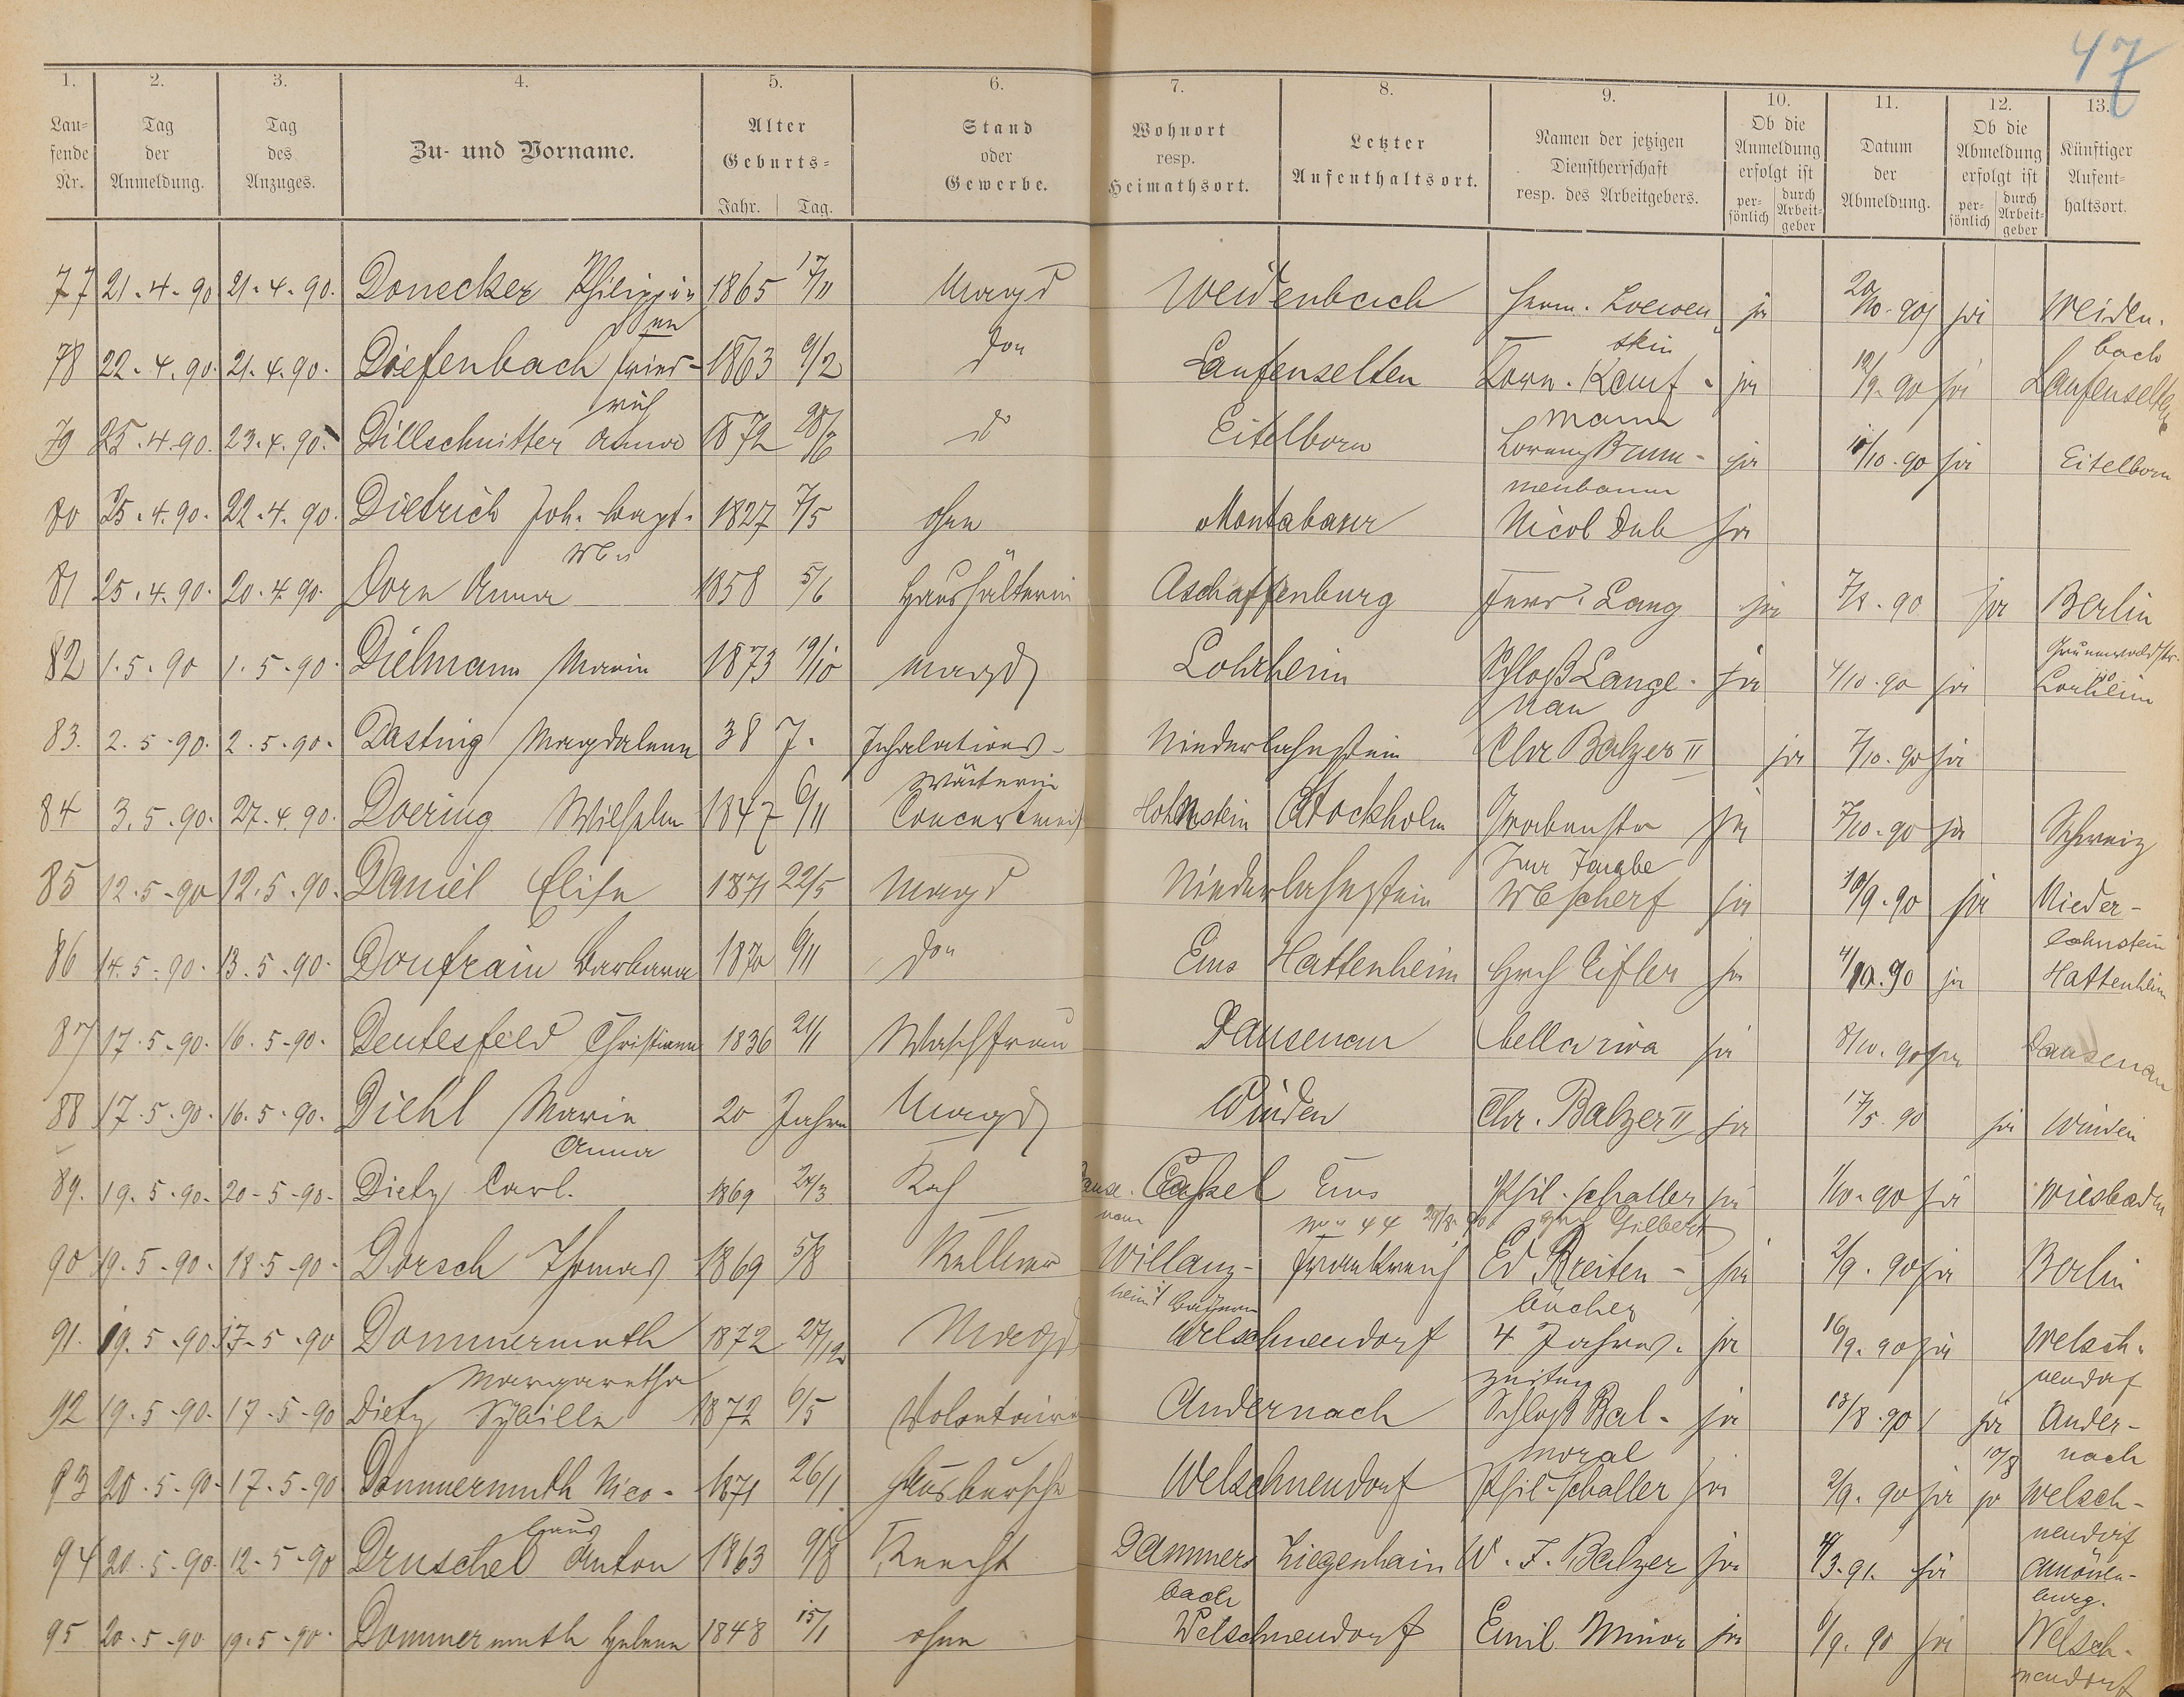 47
1. 2. 3. 4. 5. 6. 7. 8. 9. 10. 11. 12. 13.
Lau= fende Nr. Tag der Anmeldung. Tag des Anzuges. Zu- und Vorname. Alter Geburts= Jahr. Tag. Stand oder Gewerbe. Wohnort resp. Heimathsort. Letzter Aufenthaltsort. Namen der jetzigen Dienstherrschaft resp. des Arbeitgebers. Ob die Anmeldung erfolgt ist per= sönlich durch Arbeit= geber Datum der Abmeldung. Ob die Abmeldung erfolgt ist per= sönlich durch Arbeit= geber Künftiger Aufent= haltsort.
77 21.4.90 21.4.90. Donecker Philippin 1865 17/11 Magd Weidenbach Herm. Loewen ja 20/10.90 ja Weiden.
en skin bach
78 22.4.90. 21.4.90. Diefenbach Fried- 1863 9/2 don Laufenselten Korn. Kauf- ja 12/9.90 ja Laufenselten
rich mann
79 25.4.90. 23.4.90. Dillschnitter Anna 1872 28/7 do Eitelborn Lorenz Baum- ja 10/10.90 ja Eitelborn
80 25.4.90. 22.4.90. Dietrich Joh. Bapt. 1827 7/5 ohne Montabaur Nicol Dub ja
Ww
81 25.4.90. 20.4.90. Dorn Anna 1858 5/6 Haushälterin Aschaffenburg Ferd. Lang ja 7/8.90 ja Berlin
82 1.5.90 1.5.90. Dielmann Marie 1873 19/10 Magd Lohrheim Schloß Lange- ja 4/10.90 ja Lorheim
nau
83. 2.5.90. 2.5.90. Dasting Magdalena 38 J. Inhalations- Niederlahnstein Chr Balzer II ja 7/10.90 ja
Wärterin
84 3.5.90. 27.4.90. Doering Wilhelm 1847 6/11 Concertmeist Hohnstein Stockholm Grabenstr ja 7/10.90 ja Schweiz
85 12.5.90 12.5.90. Daniel Elise 1871 22/5 Magd Niederlahnstein Ww Scherf ja 30/9.90 ja Nieder-
lahnstein
86 14.5.90. 13.5.90. Doufrain Barbara 1870 9/11 don Ems Hattenheim Hch Eifler ja 4/10.90 ja Hattenheim
87 17.5.90. 16.5.90. Deutesfeld Christiane 1836 21/1 Waschfrau Dausenau bella riva ja 8/10.90 ja Dausenau
88 17.5.90. 16.5.90. Diehl Marie 20 Jahre Magd Winden Chr. Balzer II ja 17/5.90 ja Winden
Anna
89. 19.5.90. 20.5.90. Dietz Carl. 1869 24/3 Koch Dause- Caßel Ems Phil. Schaller ja 1/10.90 ja Wiesbaden
nau 44 29/8.90 Hch Gilbert
90 19.5.90. 18.5.90. Dorsch Thomas 1869 5/8 Kellner Willanz- Frankreich Ed Breiten- ja 2/9.90 ja Berlin
heim Bayern bücher
91. 19.5.90. 17.5.90 Dommermuth 1872 27/12 Magd Welschneudorf 4 Jahres- ja 16/9.90 ja Welsch-
Margaretha zeiten neudorf
92 19.5.90. 17.5.90 Dietz Sybilla 1872 6/5 Volontairin Andernach Schloß Bal- ja 13/8.90 ja Ander-
moral 10/8 nach
93 20.5.90. 17.5.90 Dommermuth Nico- 1871 26/1 Hausbursche Welschneudorf Phil. Schaller ja 2/9.90 ja ja Welsch-
laus neudorf
94 20.5.90. 12.5.90 Druschel Anton 1863 9/8 Knecht Dammers Ziegenhain W. F. Balzer ja 4/3.91. ja Amöne-
bach burg.
95 20.5.90 19.5.90. Dommermuth Helene 1848 15/1 ohne Welschneudorf Emil Minor ja 6/9.90 ja Welsch-
neudorf